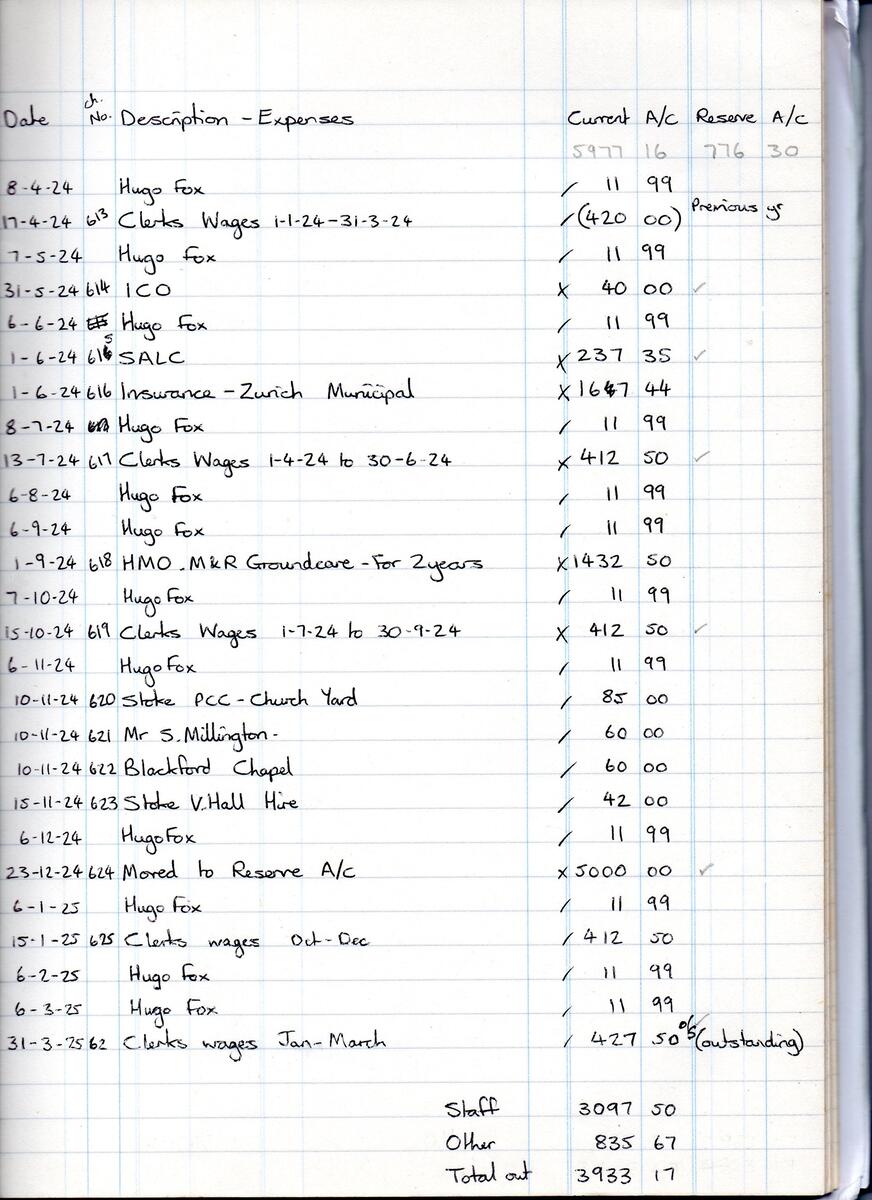 Date ch. No. Description - Expenses Current A/c Reserve A/c
5977 16 776 30
8-4-24 Hugo Fox / 11 99
17-4-24 613 Clerks Wages 1-1-24-31-3-24 / (420 00) Previous yr
7-5-24 Hugo Fox / 11 99
31-5-24 614 ICO x 40 00 ✓
6-6-24 Hugo Fox / 11 99
1-6-24 615 SALC x 237 35 ✓
1-6-24 616 Insurance - Zurich Municipal x 44
8-7-24 Hugo Fox / 11 99
13-7-24 617 Clerks Wages 1-4-24 to 30-6-24 x 412 50 ✓
6-8-24 Hugo Fox / 11 99
6-9-24 Hugo Fox / 11 99
1-9-24 618 HMO. M&R Groundcare - For 2 years x 1432 50
7-10-24 Hugo Fox / 11 99
15-10-24 619 Clerks Wages 1-7-24 to 30-9-24 x 412 50 ✓
6-11-24 Hugo Fox / 11 99
10-11-24 620 Stoke PCC - Church Yard / 85 00
10-11-24 621 Mr S. Millington - / 60 00
10-11-24 622 Blackford Chapel / 60 00
15-11-24 623 Stoke V. Hall Hire / 42 00
6-12-24 Hugo Fox / 11 99
23-12-24 624 Moved to Reserve A/c x 5000 00 ✓
6-1-25 Hugo Fox / 11 99
15-1-25 625 Clerks wages Oct-Dec / 412 50
6-2-25 Hugo Fox / 11 99
6-3-25 Hugo Fox / 11 99
31-3-25 62 Clerks wages Jan-March / 427 50 o/s (outstanding)
Staff 3097 50
Other 835 67
Total out 3933 17